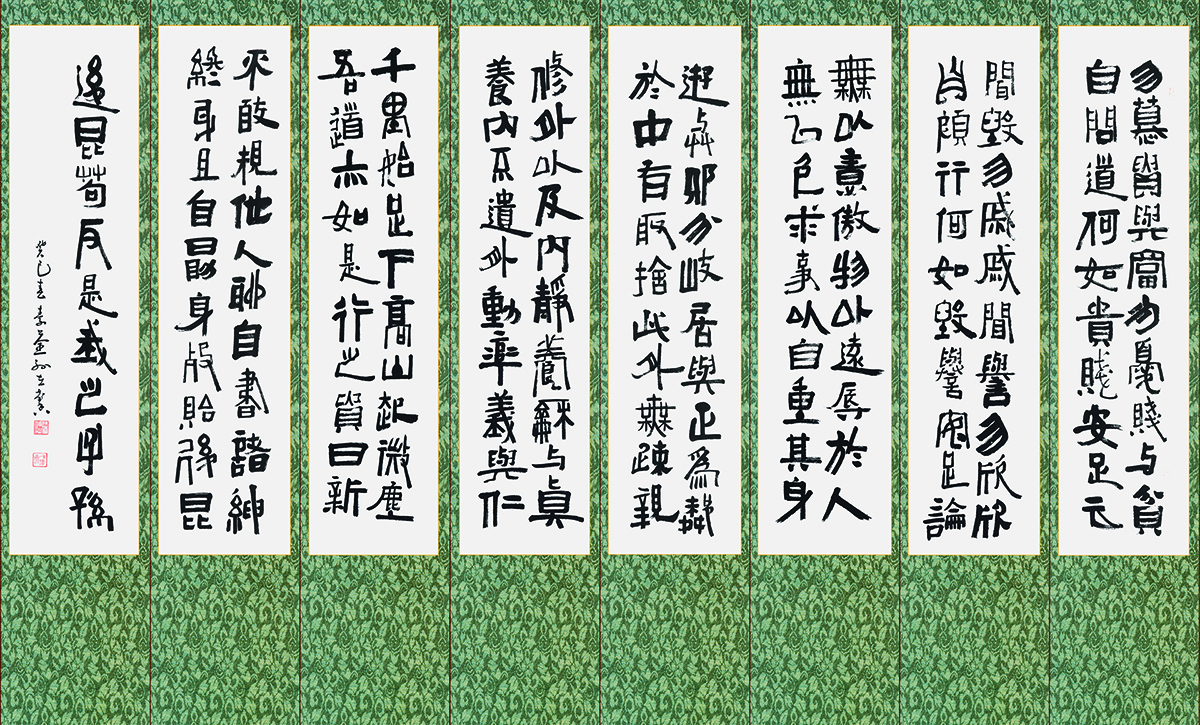 勿慕貴與富勿憂賤与貧
自問道何如貴賤安足云
聞毀勿戚戚聞譽勿欣欣
自顧行何如毀譽安足論
無以意傲物以遠辱於人
無以色求事以自重其身
遊与邪分岐居與正為鄰
於中有取捨此外無疎親
修外以及內靜養龢与真
養內不遺外動率義與仁
千里始足下高山起微塵
吾道亦如是行之貴日新
不敢規他人聊自書諸紳
終身且自勗身歿貽後昆
後昆苟反是我之子孫
癸巳